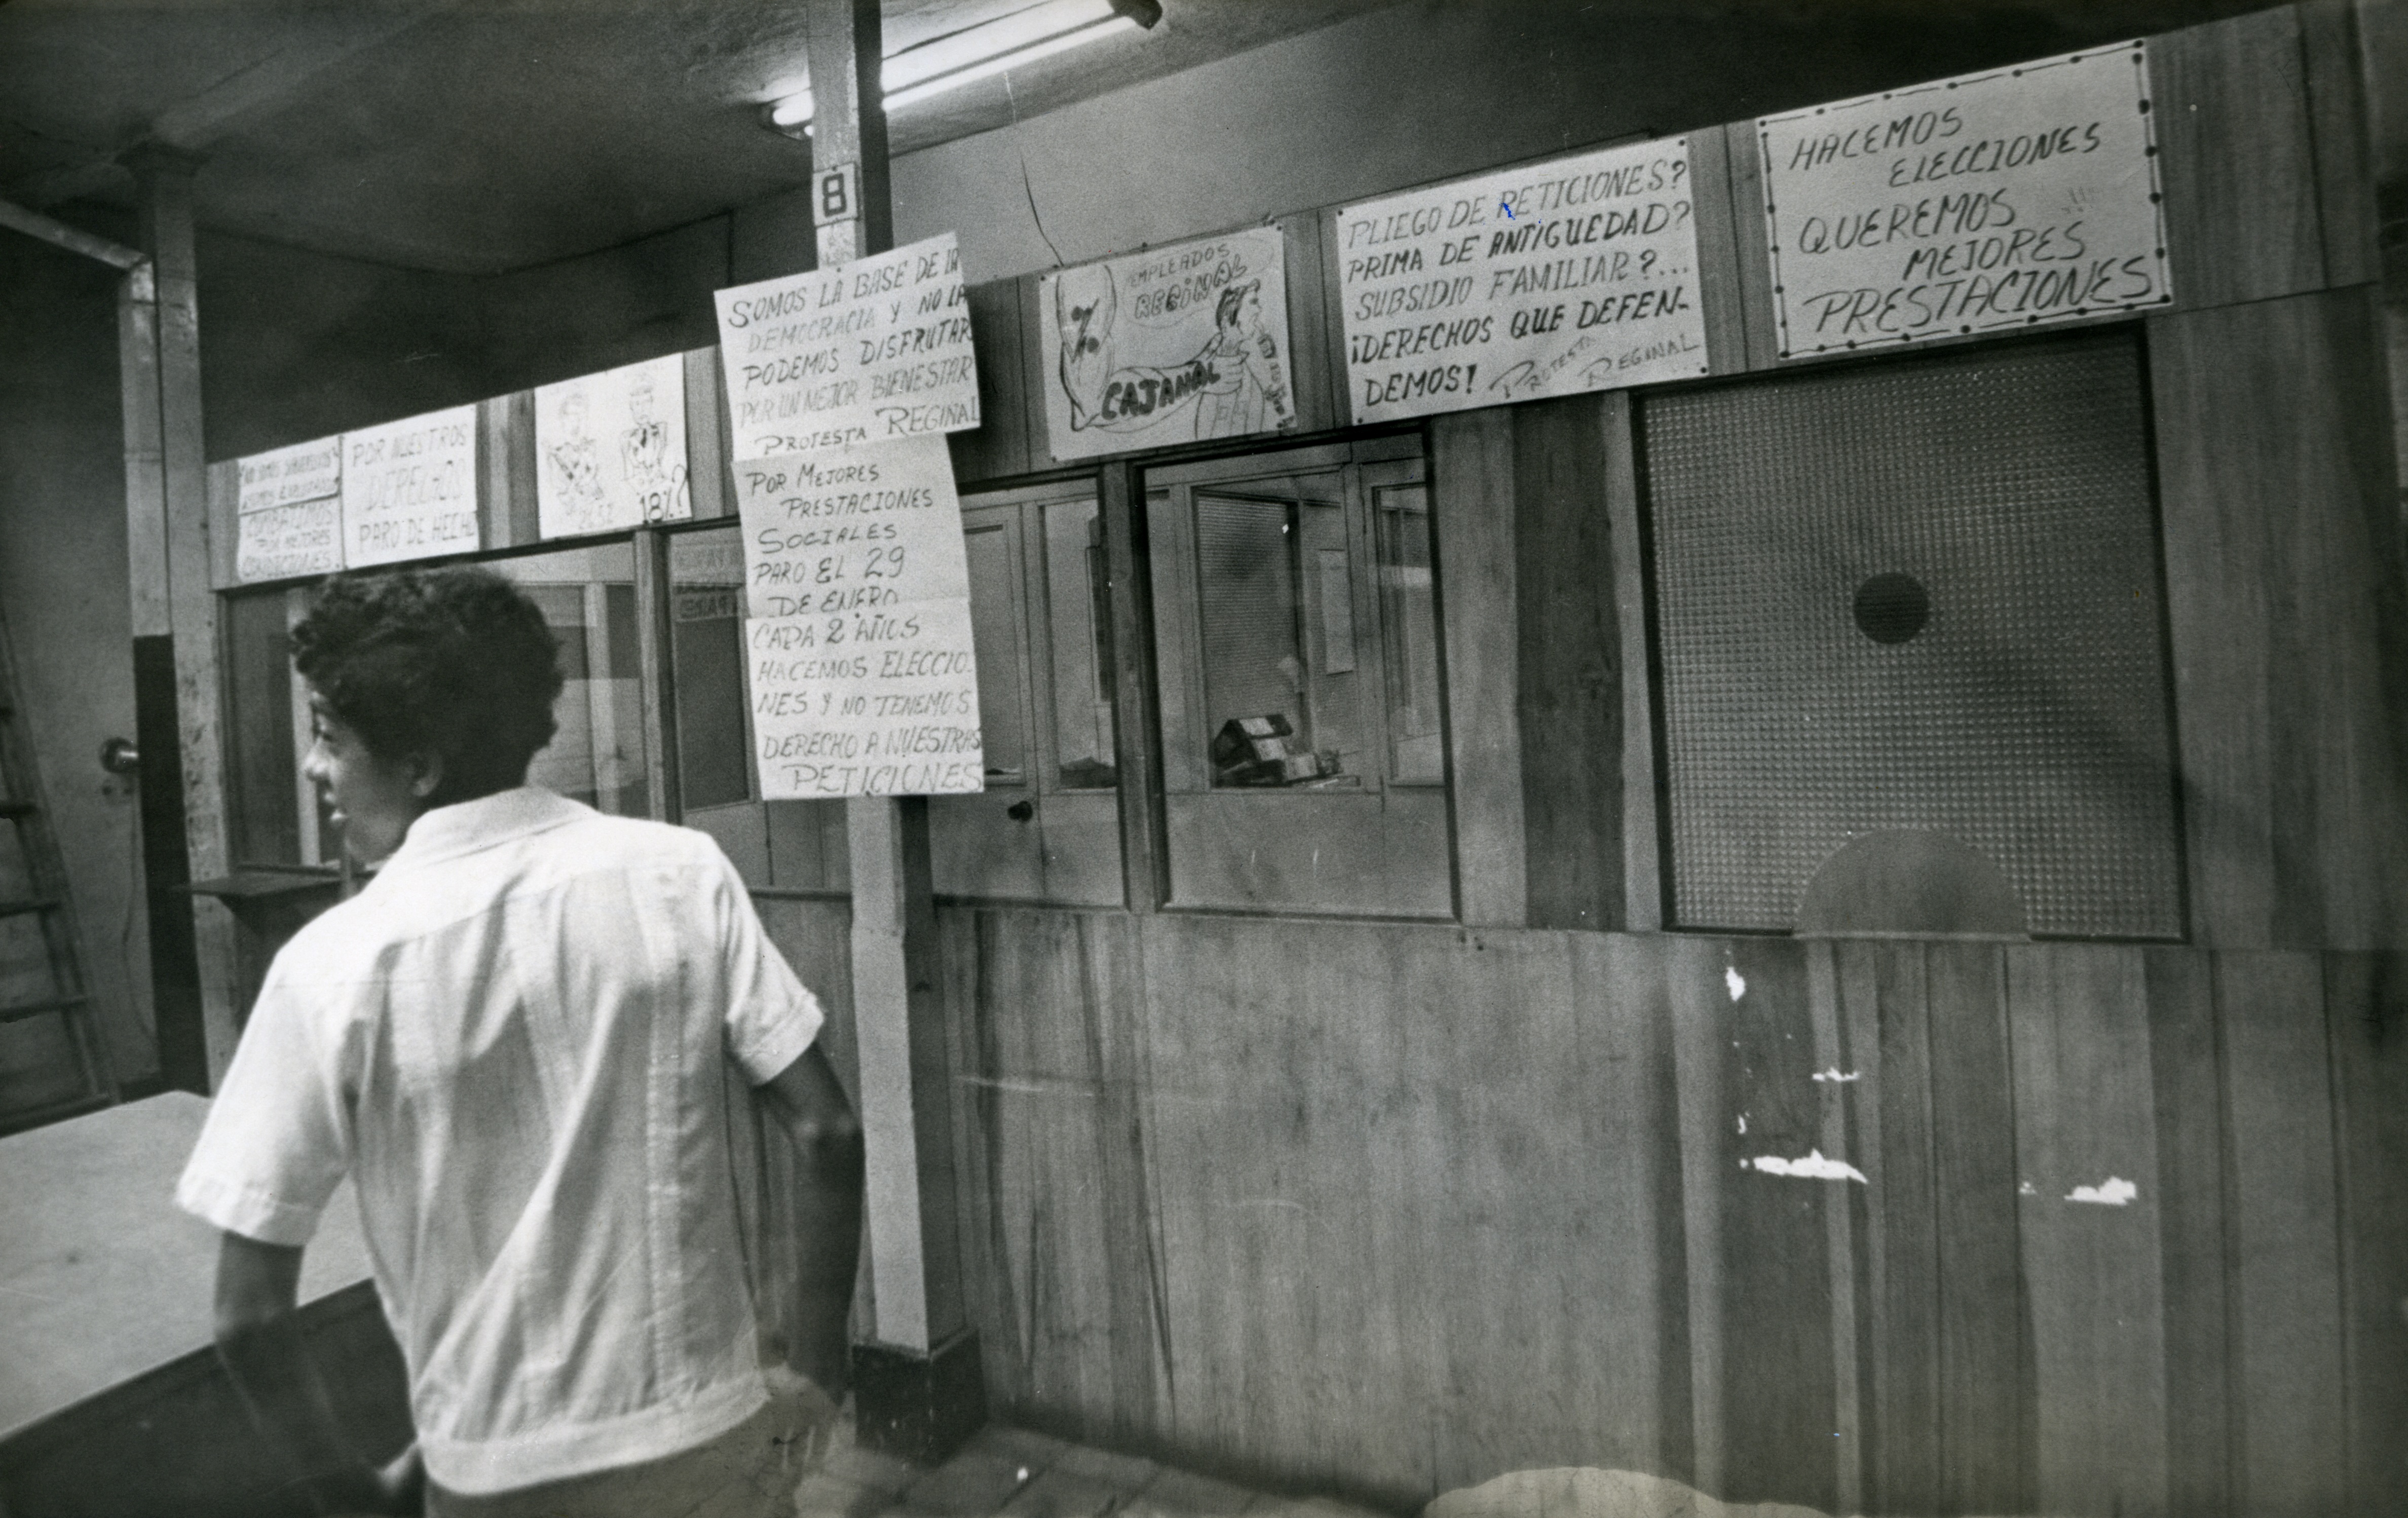 8
COMBATIMOS
POR MEJORES
CONDICIONES!
POR NUESTROS
DERECHO
PARO DE HECHO
18%?
SOMOS LA BASE DE LA
DEMOCRACIA Y NO LA
PODEMOS DISFRUTAR
POR UN MEJOR BIENESTAR
PROTESTA REGINAL
POR MEJORES
PRESTACIONES
SOCIALES
PARO EL 29
DE ENERO
CADA 2 AÑOS
HACEMOS ELECCIO-
NES Y NO TENEMOS
DERECHO A NUESTRAS
PETICIONES
EMPLEADOS
REGINAL
CAJANAL
PLIEGO DE RETICIONES?
PRIMA DE ANTIGUEDAD?
SUBSIDIO FAMILIAR?...
¡DERECHOS QUE DEFEN-
DEMOS!
PROTESTA
REGINAL
HACEMOS
ELECCIONES
QUEREMOS
MEJORES
PRESTACIONES